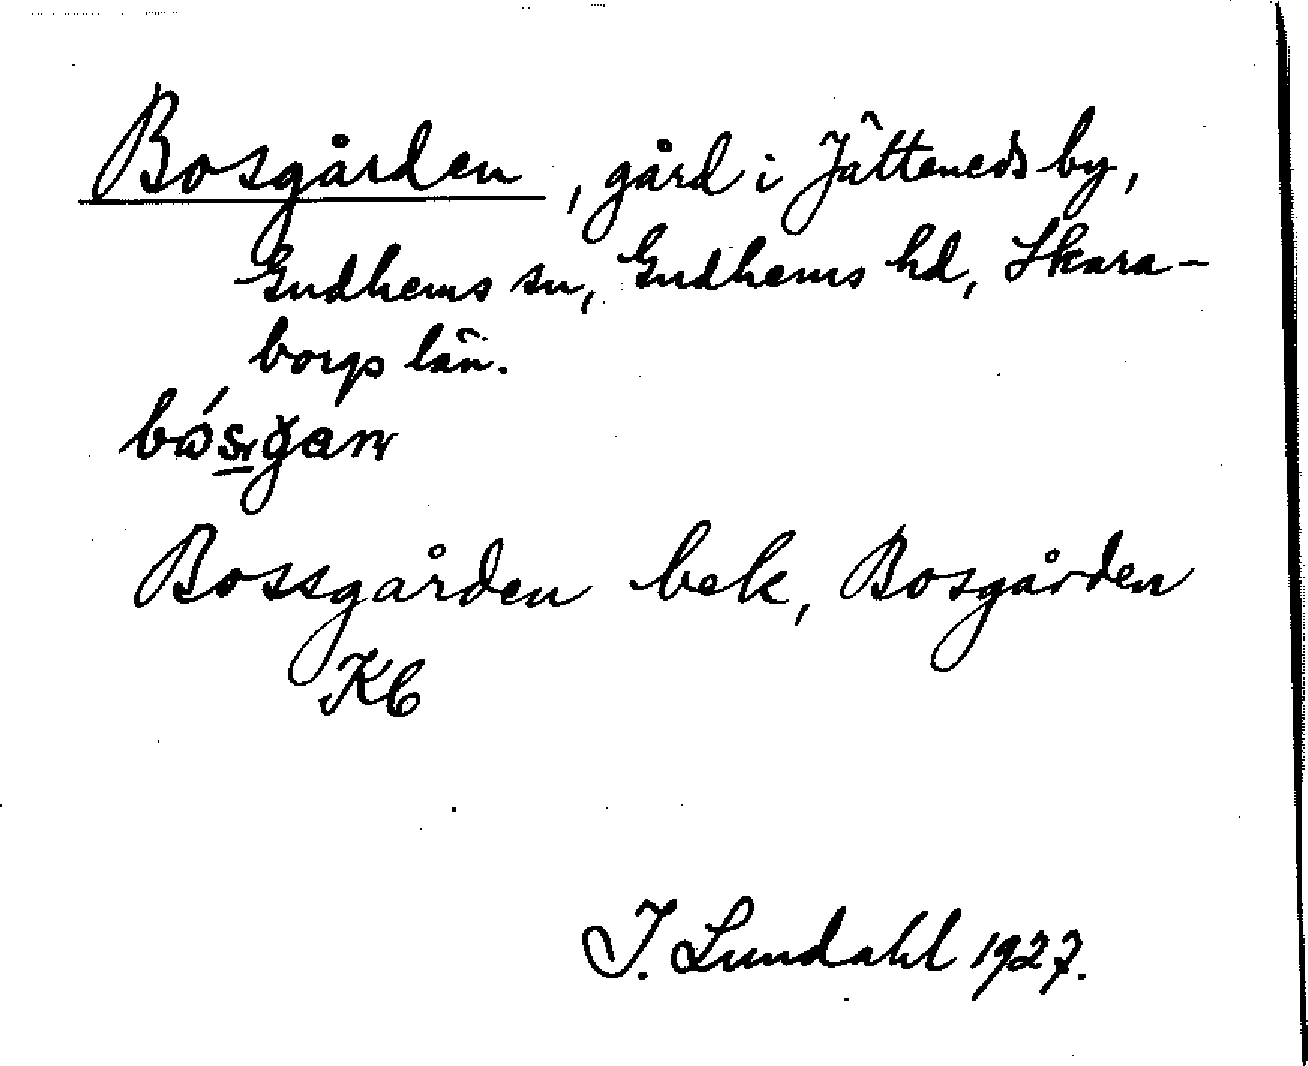 Bosgården, gård i Jätteneds by,
Gudhems sn, Gudhems hd, Skara-
borgs län.
Bossgården bek, Bosgården
Kb
I. Lundahl 1927.